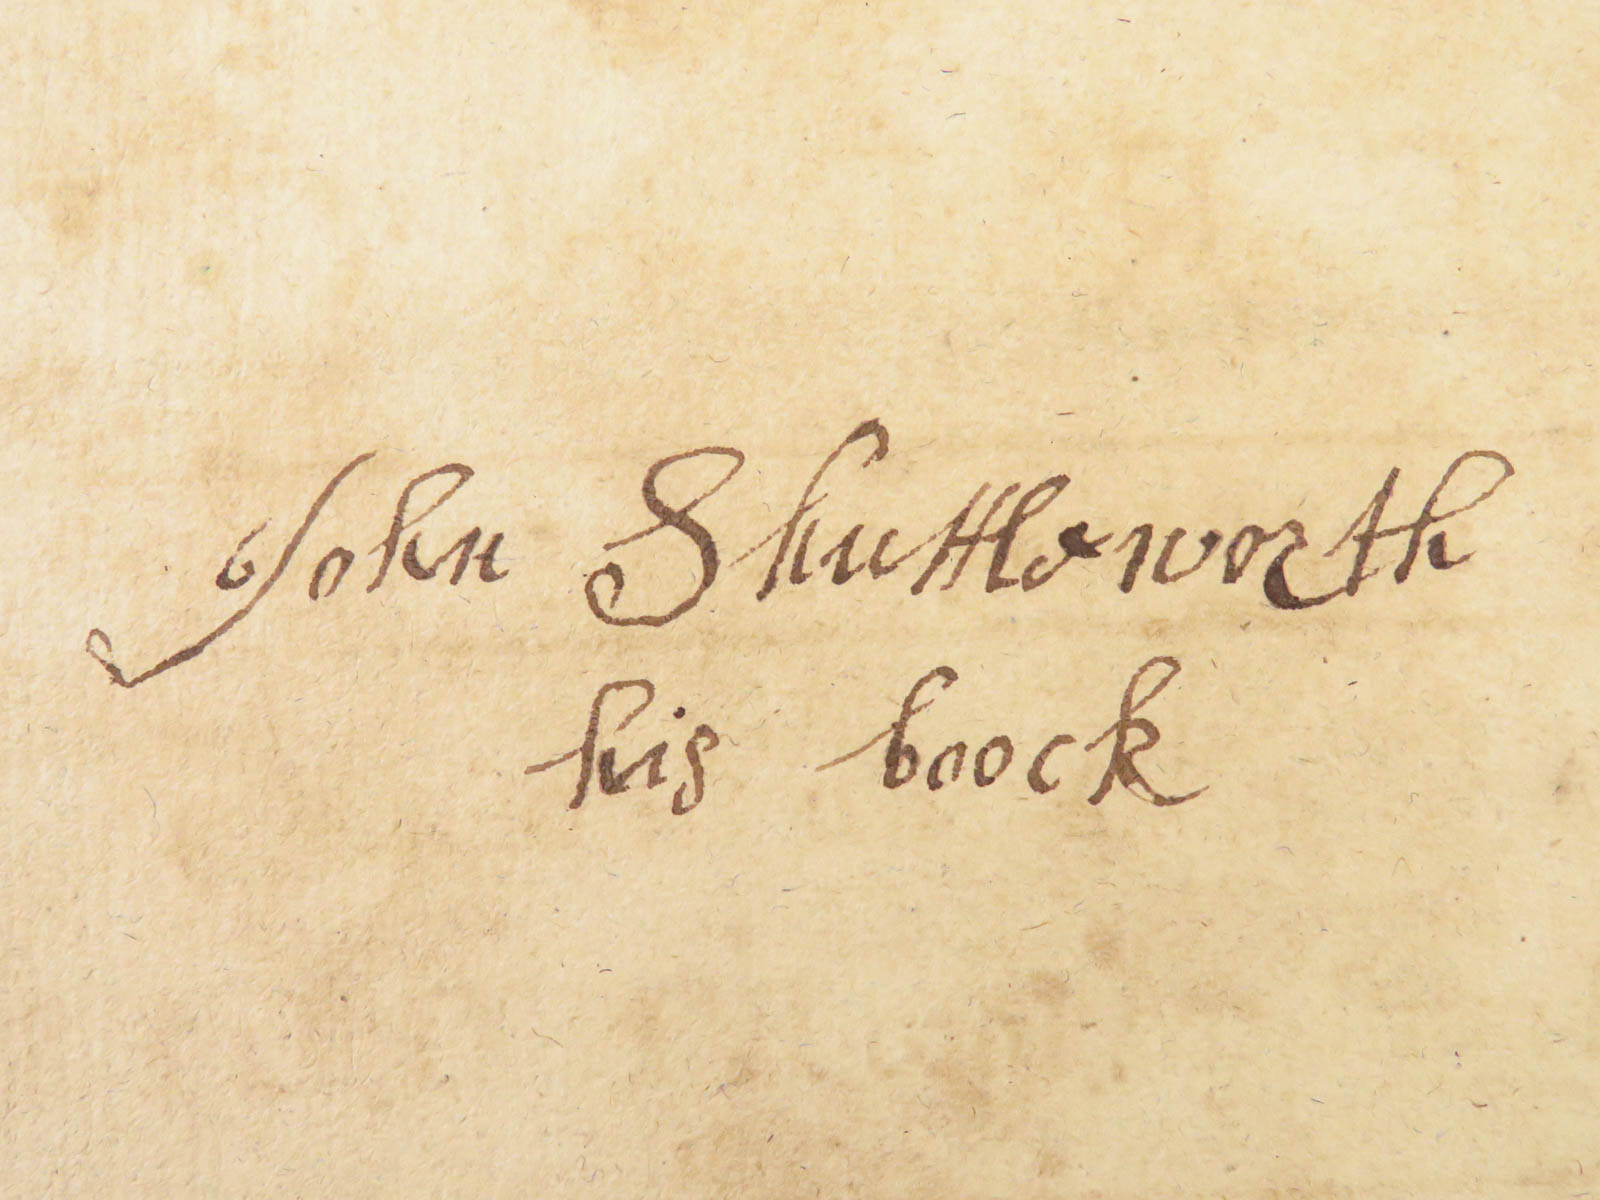 John Shuttleworth
his boock